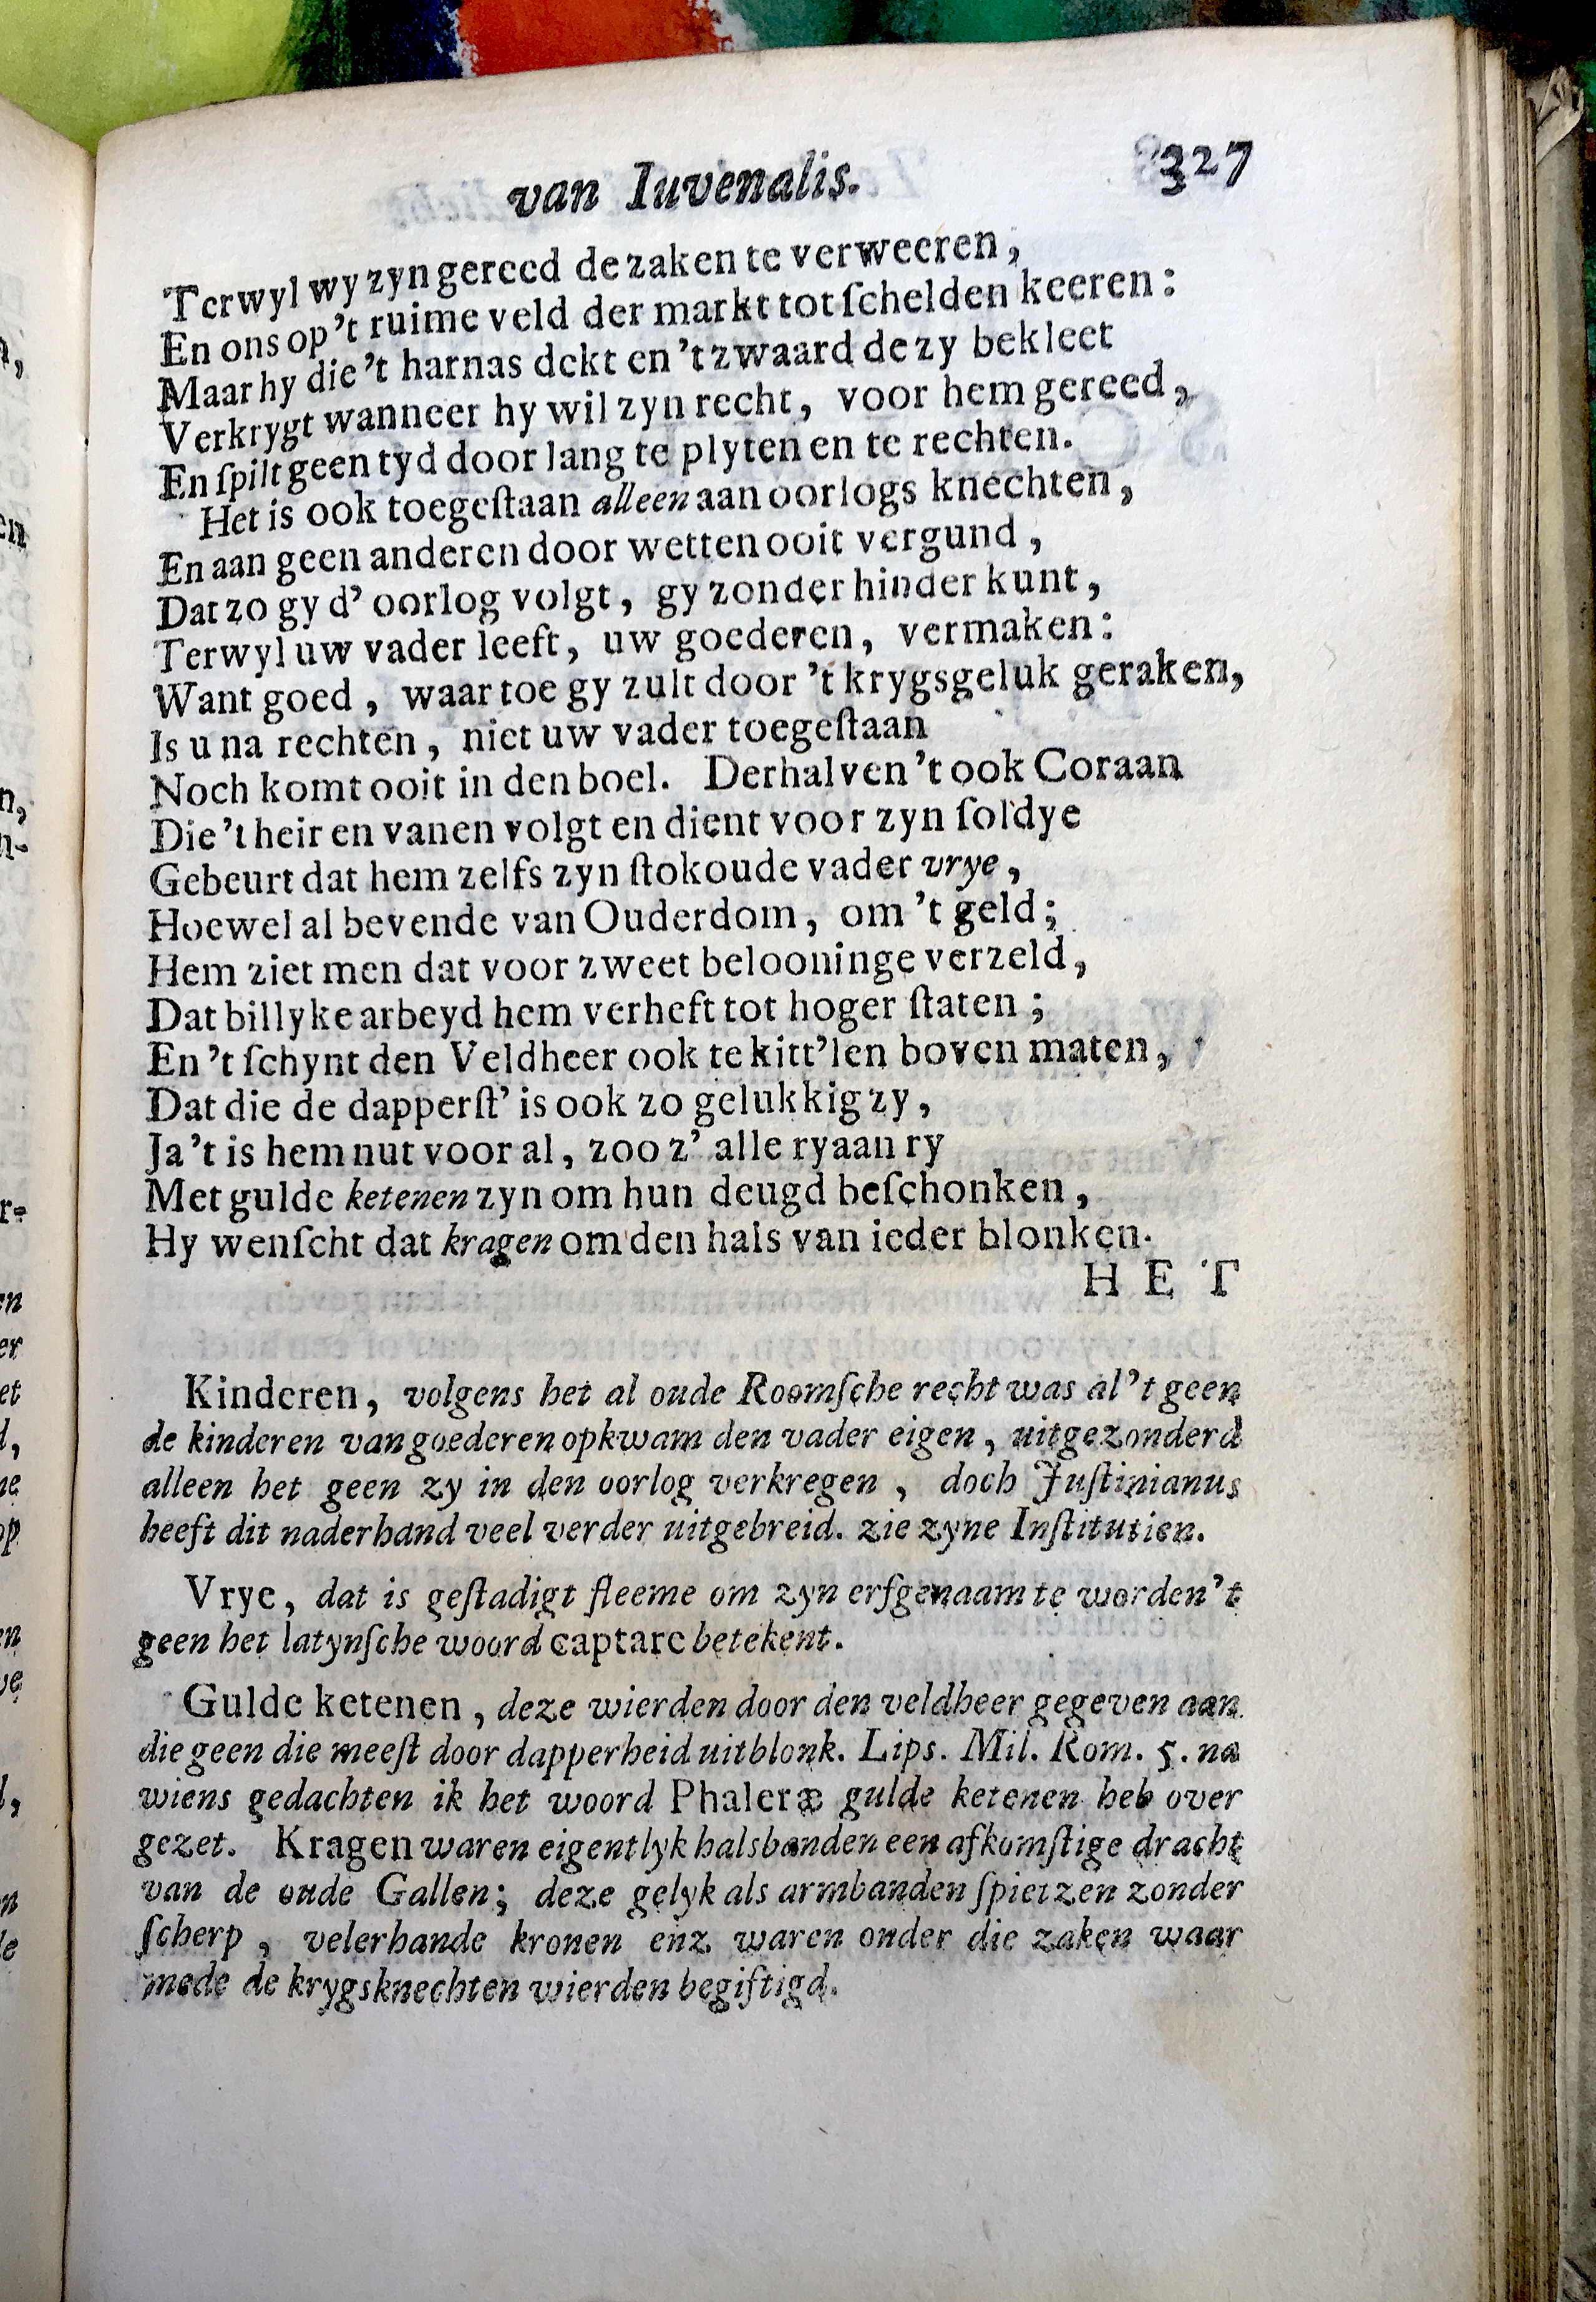 van Iuvenalis. 327
Terwyl wy zyn gereed de zaken te verweeren,
En ons op 't ruime veld der markt tot ſchelden keeren:
Maar hy die 't harnas dekt en 't zwaard de zy bekleet
Verkrygt wanneer hy wil zyn recht, voor hem gereed,
En ſpilt geen tyd door lang te plyten en te rechten.
Het is ook toegeſtaan alleen aan oorlogs knechten,
En aan geen anderen door wetten ooit vergund,
Dat zo gy d' oorlog volgt, gy zonder hinder kunt,
Terwyl uw vader leeft, uw goederen, vermaken:
Want goed, waar toe gy zult door 't krygsgeluk geraken,
Is u na rechten, niet uw vader toegeſtaan
Noch komt ooit in den boel. Derhalven 't ook Coraan
Die 't heir en vanen volgt en dient voor zyn ſoldye
Gebeurt dat hem zelfs zyn ſtokoude vader vrye,
Hoewel al bevende van Ouderdom, om 't geld;
Hem ziet men dat voor zweet belooninge verzeld,
Dat billyke arbeyd hem verheft tot hoger ſtaten;
En 't ſchynt den Veldheer ook te kitt'len boven maten,
Dat die de dapperſt' is ook zo gelukkig zy,
Ja 't is hem nut voor al, zoo z' alle ry aan ry
Met gulde ketenen zyn om hun deugd beſchonken,
Hy wenſcht dat kragen om den hals van ieder blonken.
HET
Kinderen, volgens het al oude Roomſche recht was al 't geen
de kinderen van goederen opkwam den vader eigen, uitgezonderd
alleen het geen zy in den oorlog verkregen, doch Juſtinianus
heeft dit naderhand veel verder uitgebreid. zie zyne Inſtitutien.
Vrye, dat is geſtadigt fleeme om zyn erfgenaam te worden 't
geen het latynſche woord captare betekent.
Gulde ketenen, deze wierden door den veldheer gegeven aan
die geen die meeſt door dapperheid uitblonk. Lips. Mil. Rom. 5. na
wiens gedachten ik het woord Phaleræ gulde ketenen heb over
gezet. Kragen waren eigentlyk halsbanden een afkomſtige dracht
van de oude Gallen; deze gelyk als armbanden ſpietzen zonder
ſcherp, velerhande kronen enz waren onder die zaken waar
mede de krygsknechten wierden begiftigd.